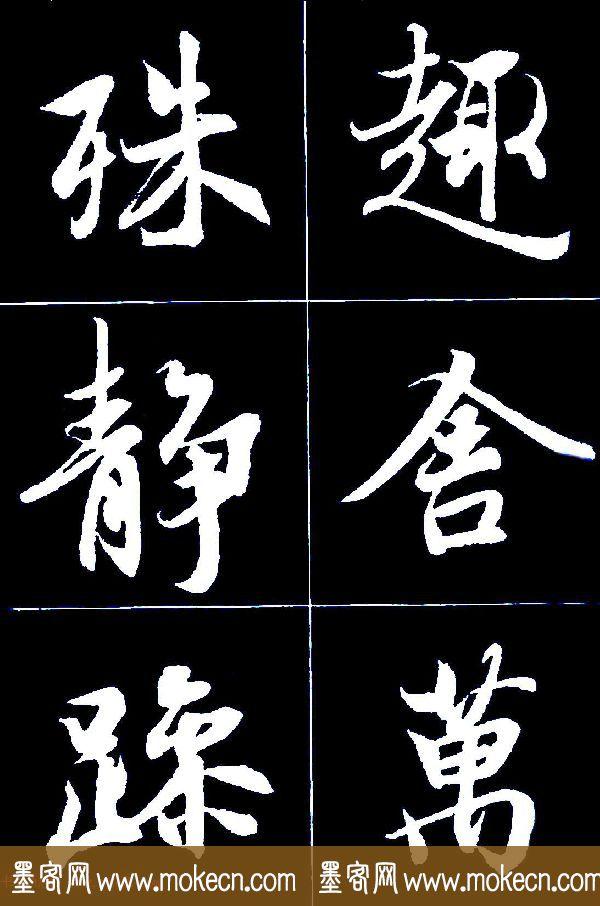 趣舍萬
殊静躁
墨客网 www.mokecn.com 墨客网 www.mokecn.com